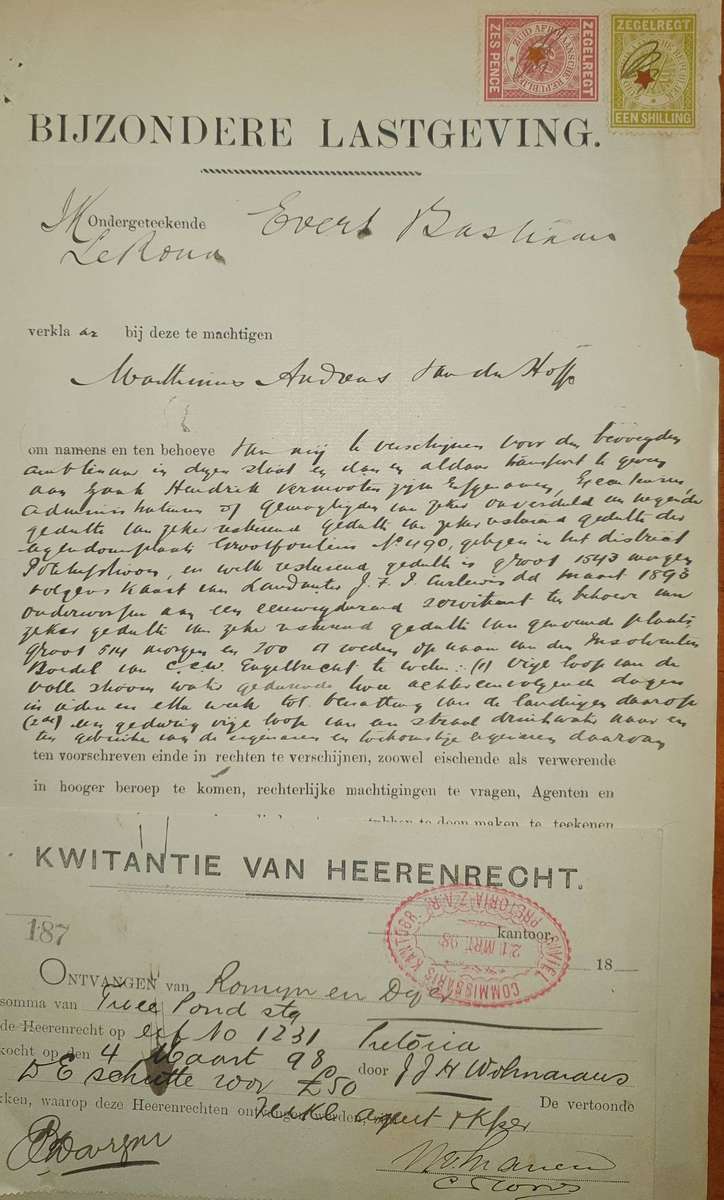 ZEGELREGT
ZUID AFRIKAANSCHE REPUBLIEK
ZES PENCE
ZEGELREGT
EEN SHILLING
BIJZONDERE LASTGEVING.
IK Ondergeteekende Evert Bastiaan
verkla ar bij deze te machtigen
Marthinus Andreas van der Hoff
om namens en ten behoeve van mij te verschijnen voor den bevoegden
ambtenaar in dezen staat en dan en aldaar transport te geven
aan Hendrik Vermooten zijne Erfgenamen, Executeuren,
Administrateuren of Gemagtigden van zeker onverdeeld een negende
gedeelte van zeker resteerend gedeelte van zeker resteerend gedeelte der
eigendomplaats Grootfontein No 490, gelegen in het district
Potchefstroom, en welk resteerend gedeelte is groot 1543 morgen
volgens Kaart van Landmeter J. F. I. Curlewis dd Maart 1893
onderworpen aan een eeuwigdurend servituut ten behoeve van
zeker gedeelte van zeker resteerend gedeelte van genoemde plaats
groot 514 morgen en 200 roeden op naam van den Insolventen
Boedel van C.C.W. Engelbrecht te weten: (1) vrije loop van de
volle stroom water gedurende twee achtereenvolgende dagen
in iedere elke week tot bevatting van de landerijen daarop
een gedurig vrije loop van een straal drinkwater naar en
ten gebruike van de eigenaren en toekomstige eigenaren daarvan
ten voorschreven einde in rechten te verschijnen, zoowel eischende als verwerende
in hooger beroep te komen, rechterlijke machtigingen te vragen, Agenten en
te doen maken te teekenen
KWITANTIE VAN HEERENRECHT.
187
kantoor,
CIVIEL COMMISSARIS KANTOOR
21 MRT 98
PRETORIA Z.A.R.
18
ONTVANGEN van Romyn en Dyer
somma van Twee Pond stg
de Heerenrecht op erf No 1231 Pretoria
kocht op den 4 Maart 98 door J J H Wolmarans
D E Schutte voor £50
De vertoonde
ken, waarop deze Heerenrechten ontvangen werden,